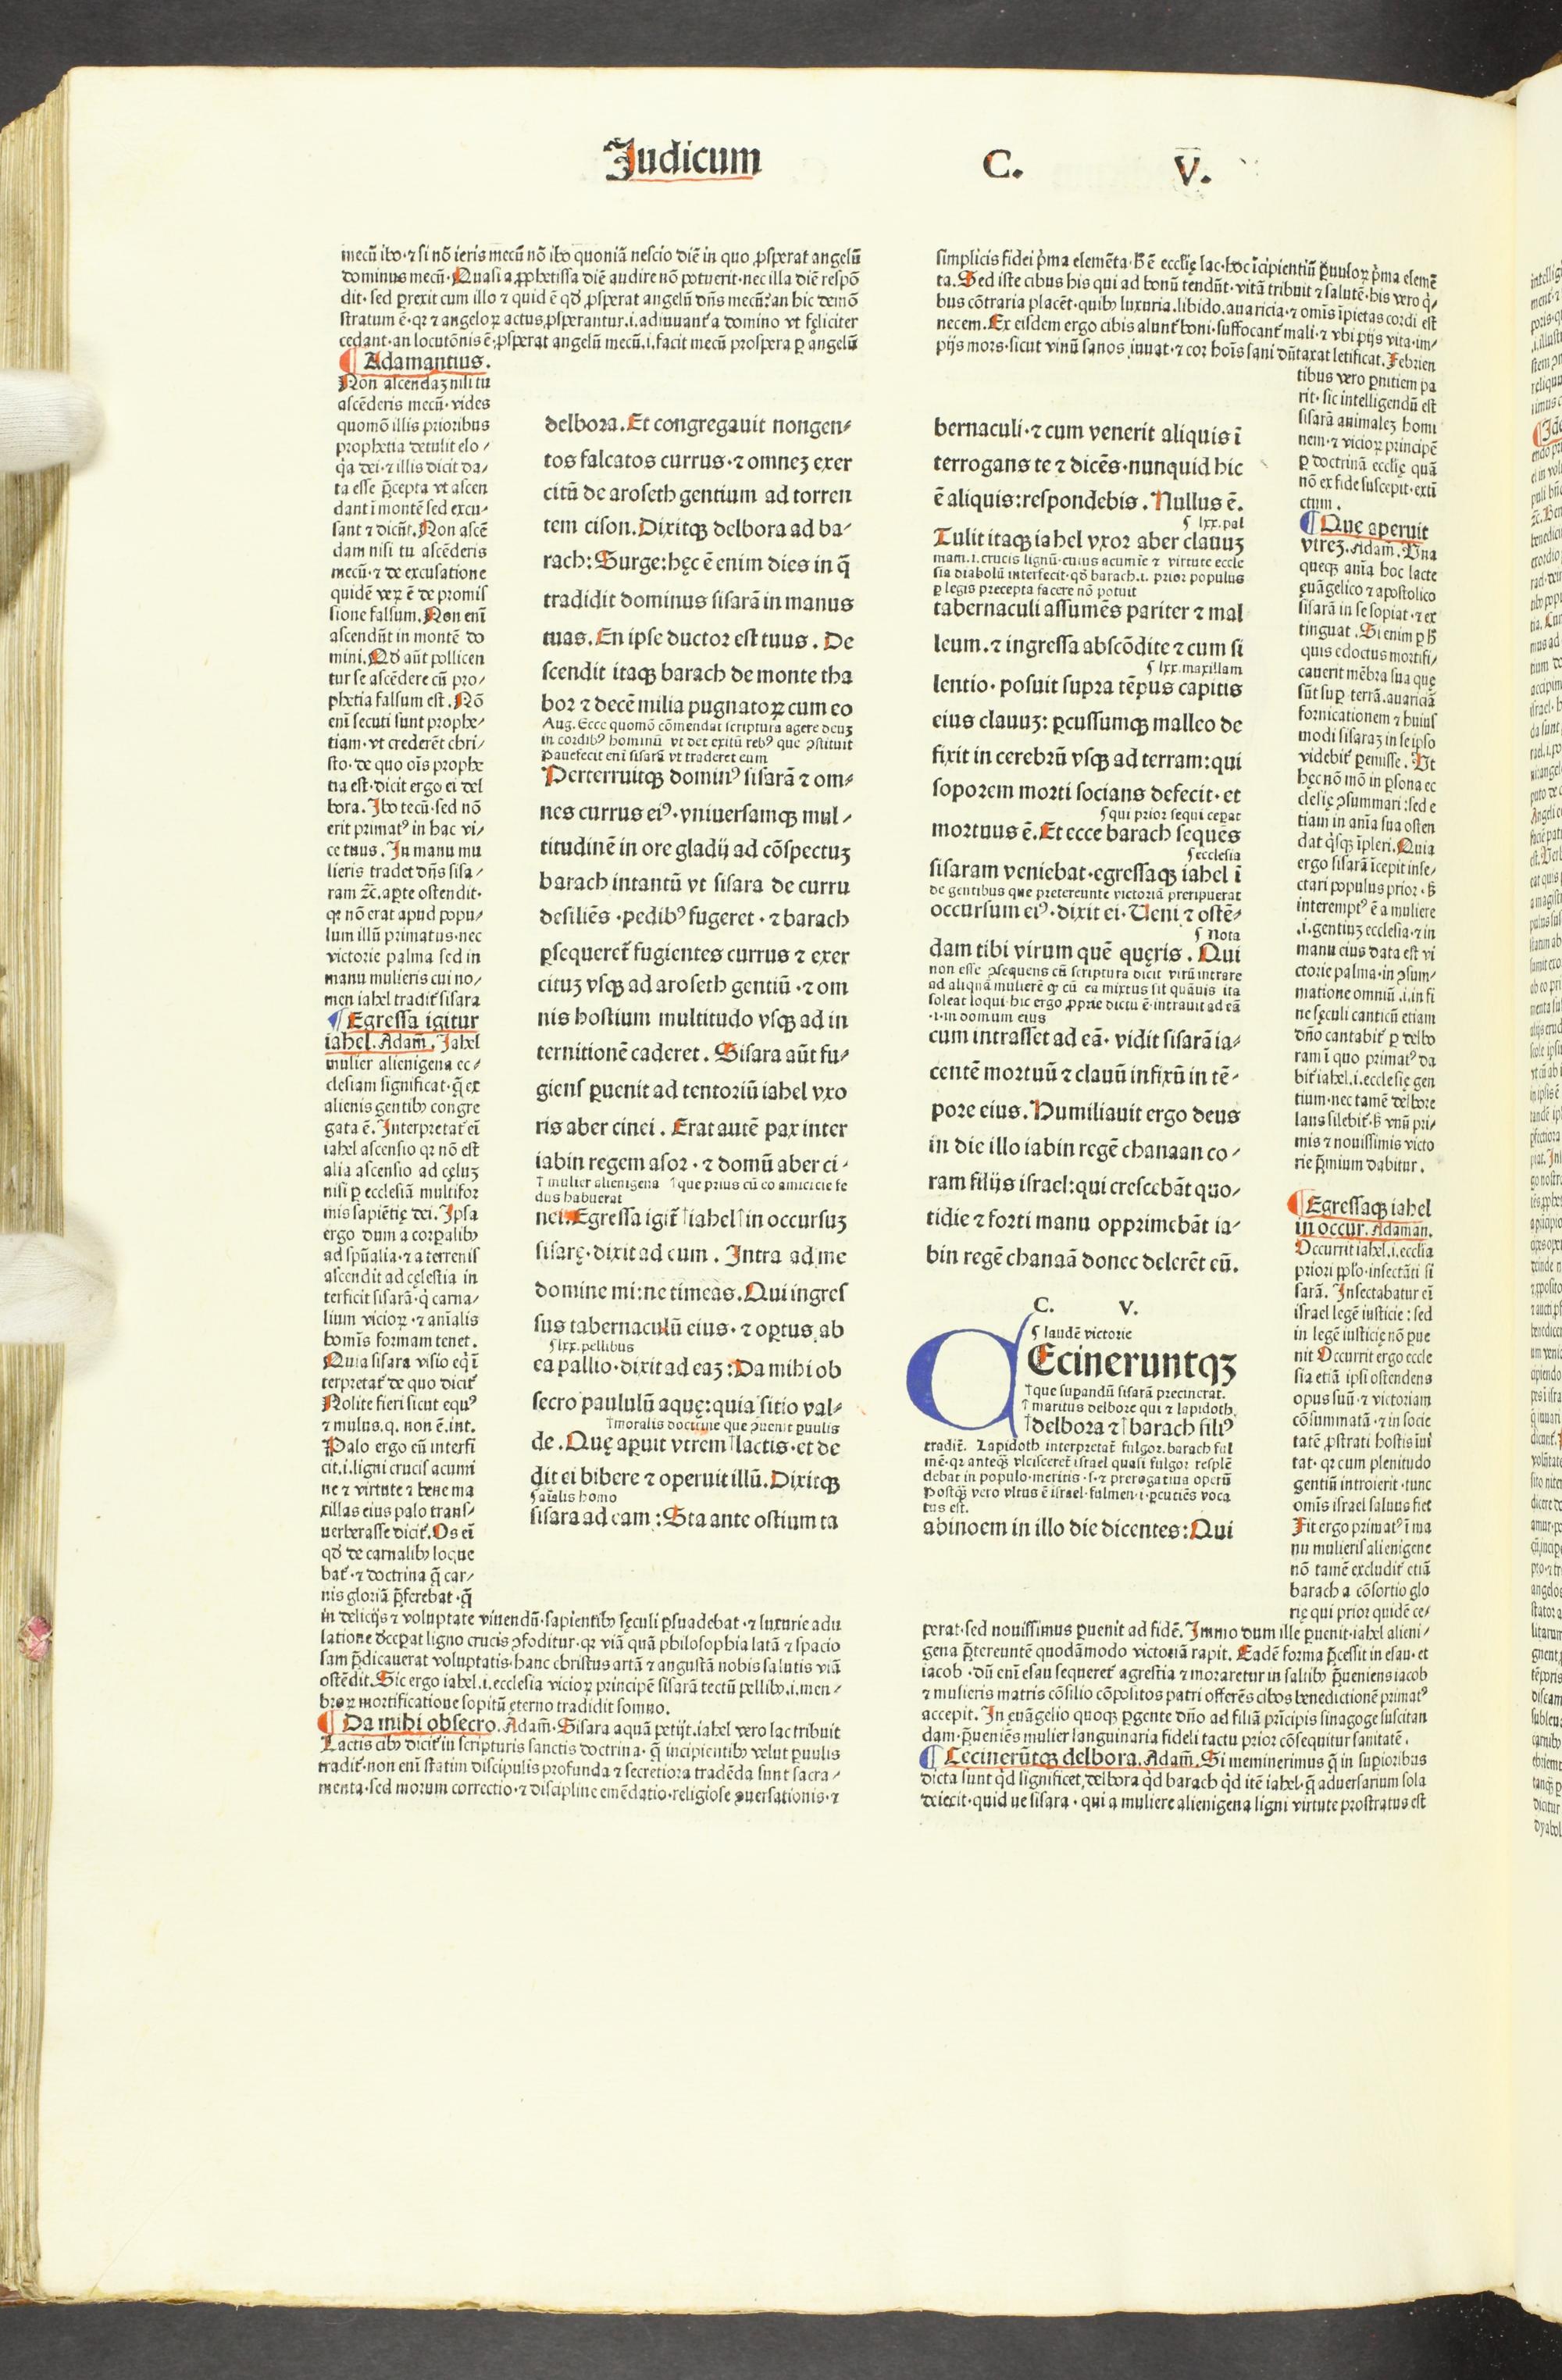 Judicum C. V.
mecū ibo·⁊ si nō ieris mecū nō ibo quoniā nescio diē in quo ꝓsperat angelū
dominus mecū·Quasi a ꝓphetissa diē audire nō potuerit·nec illa diē respō
dit·sed ꝑrexit cum illo ⁊ quid ē qđ ꝓsperat angelū dñs mecū:an hic demō
stratum ē·qꝛ ⁊ angeloꝝ actus ꝓsperantur.i.adiuuant᷑ a domino vt fęliciter
cedant·an locutōnis ē:ꝓsperat angelū mecū.i.facit mecū prospera ꝑ angelū
¶ Adamantius.
Non ascendaꝫ nisi tu
ascēderis mecū·vides
quomō illis prioribus
prophetia detulit elo⸗
q̄a dei·⁊ illis dicit da⸗
ta esse p̄cepta vt ascen
dant ī montē sed excu⸗
sant ⁊ dicūt.Non ascē
dam nisi tu ascēderis
mecū·⁊ de excusatione
quidē veꝝ ē de promis
sione falsum.Non enī
ascendūt in montē do
mini.Qđ aūt pollicen
tur se ascēdere cū pro⸗
phetia falsum est.Nō
enī secuti sunt prophe⸗
tiam·vt crederēt chri⸗
sto·de quo oīs prophe
tia est·dicit ergo ei del
bora.Ibo tecū·sed nō
erit primatꝰ in hac vi⸗
ce tuus.In manu mu
lieris tradet dñs sisa⸗
ram ⁊c̄.aꝑte ostendit·
qꝛ nō erat apud popu⸗
lum illū primatus·nec
victorie palma sed in
manu mulieris cui no⸗
men iahel tradit᷑ sisara
¶ Egressa igitur
iahel.Adam̄.Jahel
mulier alienigena ec⸗
clesiam significat·q̄ ex
alienis gentibꝫ congre
gata ē.Interpretat᷑ eī
iahel ascensio qꝛ nō est
alia ascensio ad cęluꝫ
nisi ꝑ ecclesiā multifor
mis sapiētię dei.Ipsa
ergo dum a corꝑalibꝫ
ad spūalia·⁊ a terrenis
ascendit ad cęlestia in
terficit sisarā·q̄ carna⸗
lium vicioꝝ ·⁊ aīalis
homīs formam tenet.
Quia sisara visio eqͥ ī
terpretat᷑ de quo dicit᷑
Nolite fieri sicut equꝰ
⁊ mulus.q. non ē.int.
Palo ergo eū interfi
cit.i.ligni crucis acumi
ne ⁊ virtute ⁊ bene ma
xillas eius palo trans⸗
uerberasse dicit᷑.Os eī
qđ de carnalibꝫ loque
bat᷑·⁊ doctrina q̄ car⸗
nis gloriā p̄ferebat·q̄
in delicijs ⁊ voluptate viuendū·sapientibꝫ sęculi ꝑsuadebat·⁊ luxurie adu
latione decꝑat ligno crucis ꝯfoditur·qꝛ viā quā philosophia latā ⁊ spacio
sam p̄dicauerat voluptatis·hanc christus artā ⁊ angustā nobis salutis viā
ostēdit.Sic ergo iahel.i.ecclesia vicioꝝ principē sisarā tectū pellibꝫ.i.mem⸗
broꝝ mortificatione sopitū ęterno tradidit somno.
¶ Da mihi obsecro.Adam̄·Sisara aquā petijt.iahel vero lac tribuit
Lactis cibꝫ dicit᷑ in scripturis sanctis doctrina·q̄ incipientibꝫ velut ꝑuulis
tradit᷑·non enī statim discipulis profunda ⁊ secretiora tradēda sunt sacra⸗
menta·sed morum correctio·⁊ discipline emēdatio·religiose ꝯuersationis·⁊
delbora.Et congregauit nongen⸗
tos falcatos currus·⁊ omneꝫ exer
citū de aroseth gentium ad torren
tem cison.Dixitqꝫ delbora ad ba⸗
rach:Surge:hęc ē enim dies in q̄
tradidit dominus sisarā in manus
tuas.En ipse ductor est tuus . De
scendit itaqꝫ barach de monte tha
bor ⁊ decē milia pugnatoꝝ cum eo
Aug.Ecce quomō cōmendat scriptura agere deuꝫ
in cordibꝰ hominū vt det exitū rebꝰ que ꝯstituit
pauefecit enī sisarā vt traderet eum
Perterruitqꝫ dominꝰ sisarā ⁊ om⸗
nes currus eiꝰ·vniuersamqꝫ mul⸗
titudinē in ore gladij ad cōspectuꝫ
barach intantū vt sisara de curru
desiliēs ·pedibꝰ fugeret·⁊ barach
ꝑsequeret᷑ fugientes currus ⁊ exer
cituꝫ vsqꝫ ad aroseth gentiū ·⁊ om
nis hostium multitudo vsqꝫ ad in
ternitionē caderet . Sisara aūt fu⸗
giens ꝑuenit ad tentoriū iahel vxo
ris aber cinei . Erat autē pax inter
iabin regem asor·⁊ domū aber ci⸗
† mulier alienigena † que prius cū eo amicicie fe
dus habuerat
nei.Egressa igit᷑ †iahel†in occursuꝫ
sisarę·dixit ad eum . Intra ad me
domine mi:ne timeas.Qui ingres
sus tabernaculū eius·⁊ oꝑtus ab
¶ lxx.pellibus
ea pallio·dixit ad eaꝫ:Da mihi ob
secro paululū aquę:quia sitio val⸗
†moralis doctrine que ꝯuenit ꝑuulis
de.Quę aꝑuit vtrem†lactis·et de
dit ei bibere ⁊ operuit illū.Dixitqꝫ
¶ aīalis homo
sisara ad eam:Sta ante ostium ta
simplicis fidei p̄ma elemēta·ꝟ ē ecclīę lac·hoc īcipientiū ꝑuuloꝝ p̄ma elemē
ta.Sed iste cibus his qui ad bonū tendūt·vitā tribuit ⁊ salutē·his vero qͥ⸗
bus cōtraria placēt·quibꝫ luxuria.libido.auaricia·⁊ omīs īpietas cordi est
necem.Ex eisdem ergo cibis alunt᷑ boni·suffocant᷑ mali·⁊ vbi pijs vita·im⸗
pijs mors·sicut vinū sanos iuuat·⁊ cor hoīs sani dūtaxat letificat.Febrien
tibus vero ꝑnitiem pa
rit·sic intelligendū est
sisarā animaleꝫ homi
nem·⁊ vicioꝝ principē
ꝑ doctrinā ecclīę quā
nō ex fide suscepit·exti
ctum.
¶ Que aperuit
vtreꝫ.Adam̄.Una
queqꝫ aīa hoc lacte
euāgelico ⁊ apostolico
sisarā in se sopiat·⁊ ex
tinguat.Si enim ꝑ ꝟ
quis edoctus mortifi⸗
cauerit mēbra sua quę
sūt suꝑ terrā.auariciā
fornicationem ⁊ huius
modi sisaraꝫ in seipso
videbit᷑ ꝑemisse.Ut
hęc nō mō in ꝑsona ec
clesię ꝯsummari:sed e
tiam in aīa sua osten
dat qͥsqꝫ īpleri.Quia
ergo sisarā īcepit inse⸗
ctari populus prior·ꝟ
interemptꝰ ē a muliere
.i.gentiuꝫ ecclesia·⁊ in
manu eius data est vi
ctorie palma·in ꝯsum⸗
matione omniū .i.in fi
ne sęculi canticū etiam
dño cantabit᷑ ꝑ delbo
ram ī quo primatꝰ da
bit᷑ iahel.i.ecclesię gen
tium·nec tamē delbore
laus silebit᷑·ꝟ vnū pri⸗
mis ⁊ nouissimis victo
rie p̄mium dabitur.
¶ Egressaqꝫ iahel
in occur.Adaman.
Occurrit iahel.i.ecclīa
priori ppl̄o·insectāti si
sarā.Insectabatur eī
israel legē iusticie:sed
in legē iusticię nō ꝑue
nit Occurrit ergo eccle
sia etiā ipsi ostendens
opus suū·⁊ victoriam
cōsummatā·⁊ in socie
tatē ꝓstrati hostis īui
tat·qꝛ cum plenitudo
gentiū introierit·tunc
omīs israel saluus fiet
Fit ergo primatꝰ ī ma
nu mulieris alienigene
nō tamē excludit᷑ etiā
barach a cōsortio glo
rię qui prior quidē ce⸗
perat·sed nouissimus ꝑuenit ad fidē.Immo dum ille ꝑuenit·iahel alieni⸗
gena p̄tereuntē quodāmodo victoriā rapit.Eadē forma p̄cessit in esau·et
iacob ·dū enī esau sequeret᷑ agrestia ⁊ moraretur in saltibꝫ p̄ueniens iacob
⁊ mulieris matris cōsilio cōpositos patri offerēs cibos benedictionē primatꝰ
accepit.In euāgelio quoqꝫ ꝑgente dño ad filiā pr̄incipis sinagoge suscitan
dam·p̄ueniēs mulier languinaria fideli tactu prior cōsequitur sanitatē.
¶ Cecinerūtqꝫ delbora.Adam̄.Si meminerimus q̄ in suꝑioribus
dicta sunt qͥd significet delbora qͥd barach qͥd itē iahel·q̄ aduersarium sola
deiecit·quid ue sisara·qui a muliere alienigena ligni virtute prostratus est
bernaculi·⁊ cum venerit aliquis ī
terrogans te ⁊ dicēs·nunquid hic
ē aliquis:respondebis. Nullus ē.
¶ lxx.pal
Tulit itaqꝫ iahel vxor aber clauuꝫ
mam.i.crucis lignū·cuius acumīe ⁊ virtute eccle
sia diabolū interfecit·qđ barach.i. prior populus
ꝑ legis precepta facere nō potuit
tabernaculi assumēs pariter ⁊ mal
leum.⁊ ingressa abscōdite ⁊ cum si
¶ lxx.maxillam
lentio·posuit supra tēpus capitis
eius clauuꝫ: ꝑcussumqꝫ malleo de
fixit in cerebrū vsqꝫ ad terram:qui
soporem morti socians defecit·et
¶qui prior sequi ceperat
mortuus ē.Et ecce barach sequēs
¶ecclesia
sisaram veniebat·egressaqꝫ iahel ī
de gentibus que pretereunte victoriā preripuerat
occursum eiꝰ·dixit ei·Ueni ⁊ ostē⸗
¶ Nota
dam tibi virum quē quęris . Qui
non esse ꝯsequens cū scriptura dicit virū intrare
ad aliquā mulierē ꝙ cū ea mixtus sit quāuis ita
soleat loqui·hic ergo ꝓprie dictū ē·intrauit ad eā
·i·in domum eius
cum intrasset ad eā·vidit sisarā ia⸗
centē mortuū ⁊ clauū infixū in tē⸗
pore eius.Humiliauit ergo deus
in die illo iabin regē chanaan co⸗
ram filijs israel:qui crescebāt quo⸗
tidie ⁊ forti manu opprimebāt ia⸗
bin regē chanaā donec delerēt eū.
C. V.
¶ laudē victorie
CEcineruntqꝫ
†que suꝑandū sisarā precinerat.
† maritus delbore qui ⁊ lapidoth
†delbora ⁊†barach filiꝰ
tradit᷑. Lapidoth interpretat᷑ fulgor.barach ful
mē·qꝛ anteqꝫ̄ vlcisceret᷑ israel quasi fulgor resplē
debat in populo·meritis·s·⁊ prerogatiua operū
postqꝫ̄ vero vltus ē israel·fulmen·i·ꝑcutiēs voca
tus est.
abinoem in illo die dicentes:Qui